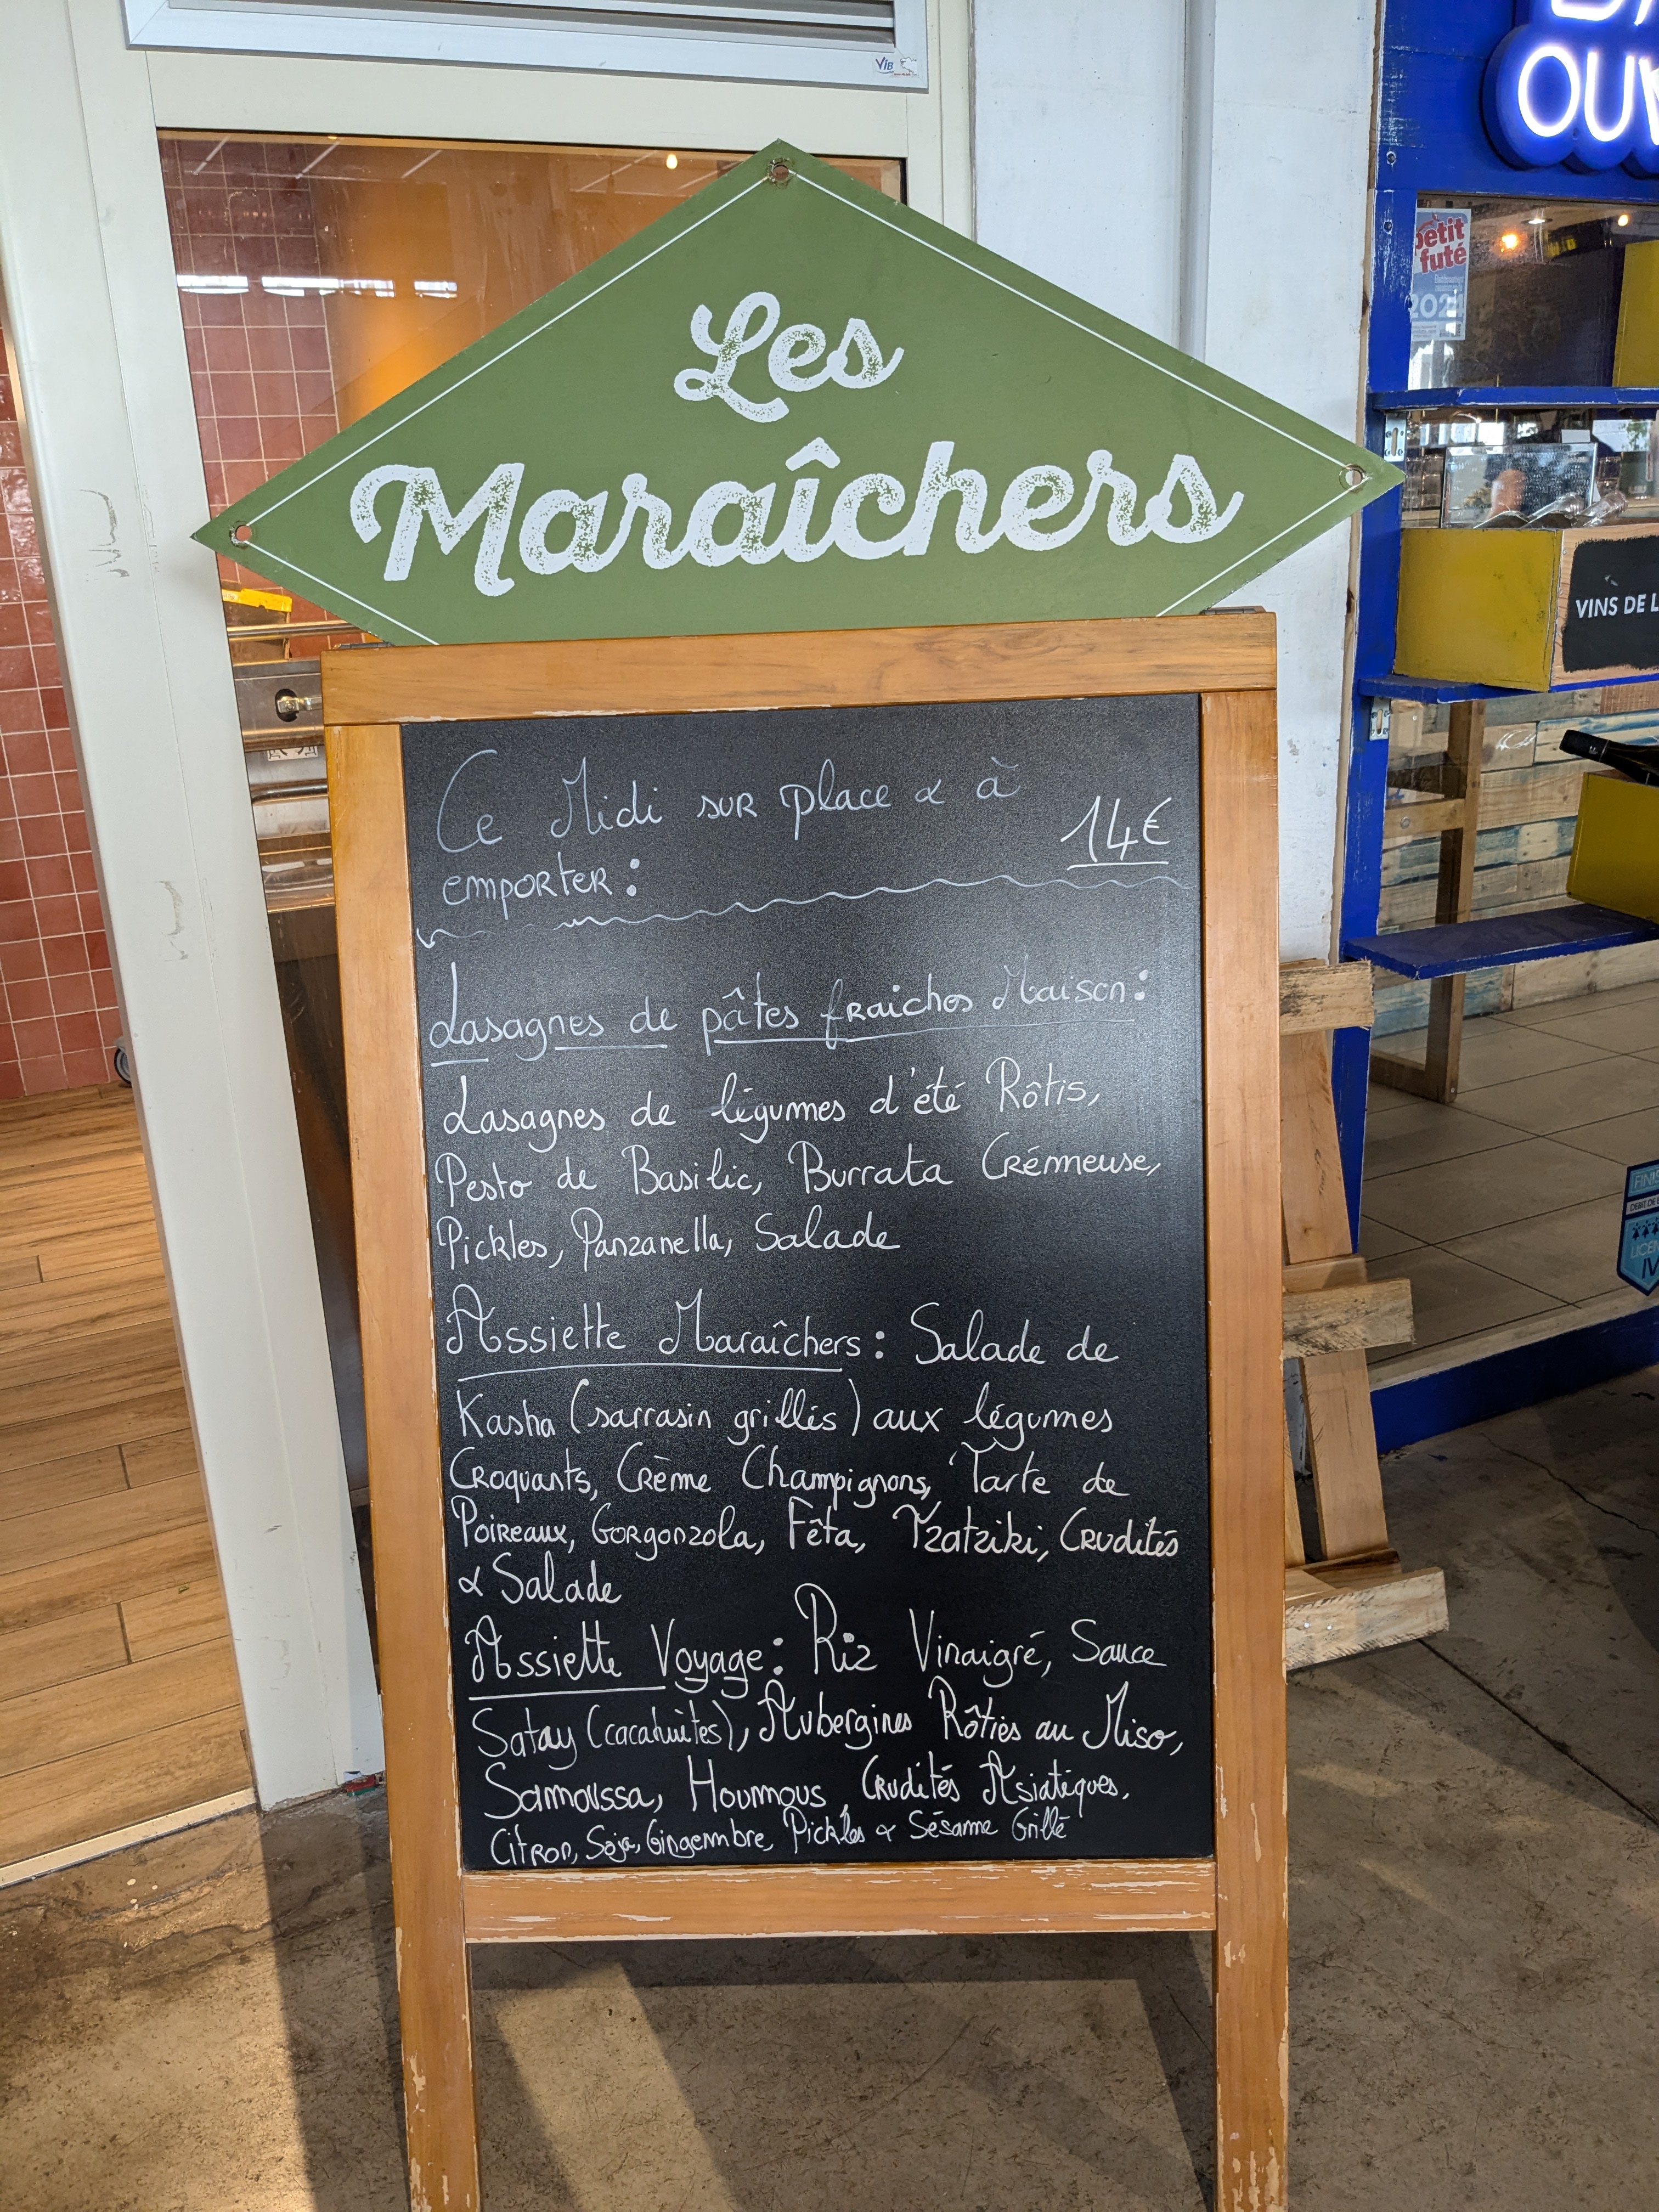 VIB
BA
OUV
petit
futé
202
Les
Maraîchers
VINS DE L
Ce Midi sur place & à
emporter :
14€
Lasagnes de pâtes fraiches Maison :
Lasagnes de légumes d'été Rôtis,
Pesto de Basilic, Burrata Crémeuse,
Pickles, Panzanella, Salade
Assiette Maraîchers : Salade de
Kasha (sarrasin grillés) aux légumes
Croquants, Crème Champignons, Tarte de
Poireaux, Gorgonzola, Fêta, Tzatziki, Crudités
& Salade
Assiette Voyage : Riz Vinaigré, Sauce
Satay (cacahuètes), Aubergines Rôties au Miso,
Samoussa, Houmous, Crudités Asiatiques,
Citron, Soja, Gingembre, Pickles & Sésame Grillé
FINIS
DEBIT DE B
LICEN
IV